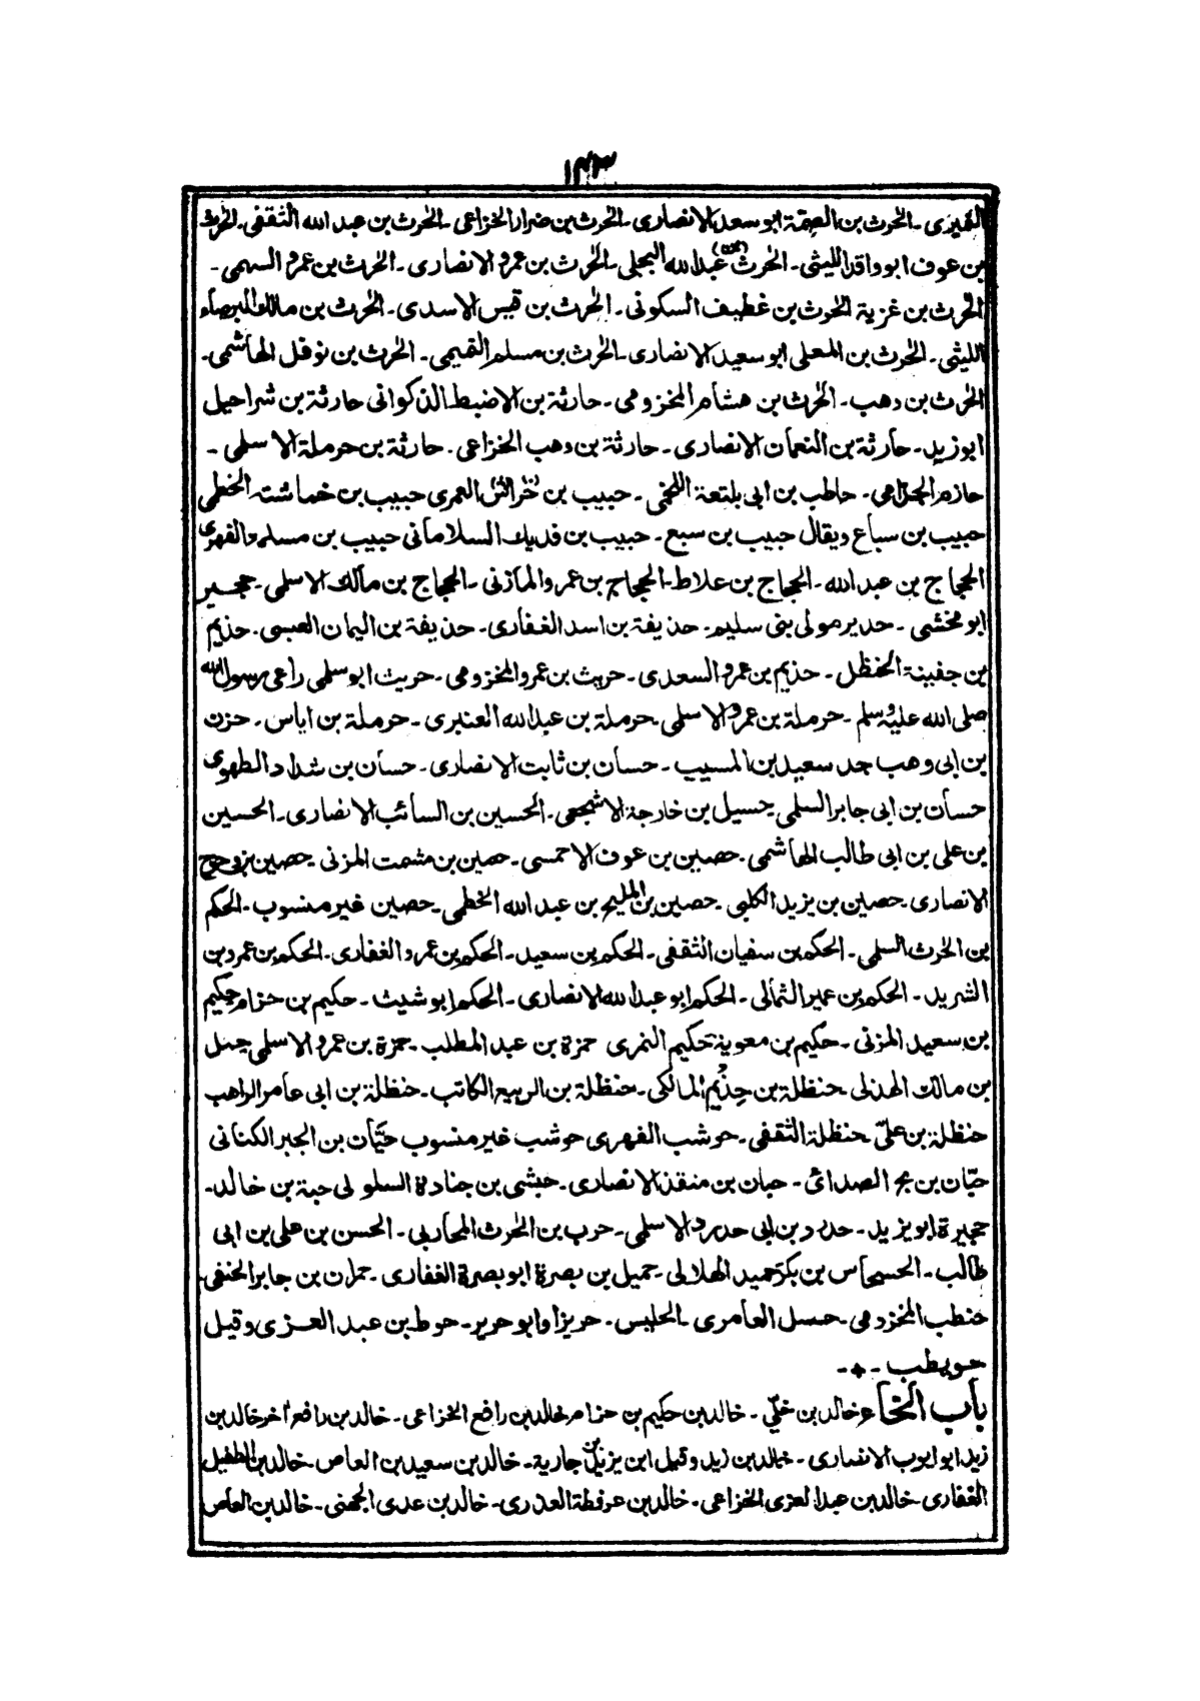 ١٣٣
النميرى۔ الحرث بن الصمة ابو سعد الانصارى۔ الحرث بن ضرار الخزاعى۔ الحرث بن عبد الله الثقفى۔ الحرث
بن عوف ابو واقد الليثى۔ الحرث عبد الله البجلى۔ الحرث بن عمرو الانصارى۔ الحرث بن عمرو السهمى۔
الحرث بن غزية الحرث بن غطيف السكونى۔ الحرث بن قيس الاسدى۔ الحرث بن مالك البرصاء
الليثى۔ الحرث بن المعلى ابو سعيد الانصارى۔ الحرث بن مسلم التميمى۔ الحرث بن نوفل الهاشمى۔
الحرث بن وهب۔ الحرث بن هشام المخزومى۔ حارثة بن الاضبط الذكوانى حارثة بن شراحيل
ابو زيد۔ حارثة بن النعمان الانصارى۔ حارثة بن وهب الخزاعى۔ حارثة بن حرملة الاسلمى۔
حازم الجزامى۔ حاطب بن ابى بلتعة اللخمى۔ حبيب بن العمرى حبيب بن خماشته الخطمى
حبيب بن سباع ويقال حبيب بن سبع۔ حبيب بن فديك السلامانى حبيب بن مسلمة الفهرى
الحجاج بن عبد الله۔ الحجاج بن علاط۔ الحجاج بن عمرو المازنى۔ الحجاج بن مالك الاسلمى۔ حجير
ابو مخشى۔ حدير مولى بنى سليم۔ حذيفة بن اسد الغفارى۔ حذيفة بن اليمان العبسى۔ حذيم
بن جفينة الحنظل۔ حذيم بن عمرو السعدى۔ حريث بن عمرو المخزومى۔ حريث ابو سلمى راعى رسول الله
صلى الله عليه وسلم۔ حرملة بن عمرو الاسلمى۔ حرملة بن عبد الله العنبرى۔ حرملة بن اياس۔ حزن
بن ابى وهب جد سعيد بن المسيب۔ حسان بن ثابت الانصارى۔ حسان بن شداد الطهوى
حسان بن ابى جابر السلمى۔ حسيل بن خارجة الاشجعى۔ الحسين بن السائب الانصارى۔ الحسين
بن على بن ابى طالب الهاشمى۔ حصين بن عوف الاحمسى۔ حصين بن مشمت المزنى۔ حصين بن وحوح
الانصارى۔ حصين بن يزيد الكلبى۔ حصين بن المليح بن عبد الله الخطمى۔ حصين غير منسوب۔ الحكم
بن الحرث السلمى۔ الحكم بن سفيان الثقفى۔ الحكم بن سعيد۔ الحكم بن عمرو الغفارى۔ الحكم بن عمرو بن
الشريد۔ الحكم بن عمير الثمالى۔ الحكم ابو عبد الله الانصارى۔ الحكم ابو شيث۔ حكيم بن حزام حكيم
بن سعيد المزنى۔ حكيم بن معوية حكيم النمرى حمزة بن عبد المطلب۔ حمزة بن عمرو الاسلمى حمل
بن مالك الهذلى۔ حنظلة بن حذيم المالكى۔ حنظلة بن الربيع الكاتب۔ حنظلة بن ابى عامر الراهب
حنظلة بن علىّ۔ حنظلة الثقفى۔ حوشب الفهرى حوشب غير منسوب حيّان بن الجبر الكنانى
حيّان بن بح الصدائى۔ حبان بن منقذ الانصارى۔ حبشى بن جنادة السلولى حبة بن خالد۔
حجيرة ابو يزيد۔ حدرد بن ابى حدرد الاسلمى۔ حرب بن الحرث المحاربى۔ الحسن بن على بن ابى
طالب۔ الحسحاس بن بكر حميد الهلالى۔ حميل بن بصرة ابو بصرة الغفارى۔ حمران بن جابر الحنفى
حنطب المخزومى۔ حسل العامرى۔ الحليس۔ حريز او ابو حرير۔ حوط بن عبد العزى وقيل
حويطب۔ ٭۔
باب الخاء خالد بن خلىّ۔ خالد بن حكيم بن حزام خالد بن رافع الخزاعى۔ خالد بن رافع اخر خالد بن
زيد ابو ايوب الانصارى۔ خالد بن زيد وقيل ابن يزيد بن جارية۔ خالد بن سعيد بن العاص۔ خالد بن الطفيل
الغفارى۔ خالد بن عبد العزى الخزاعى۔ خالد بن عرفطة العذرى۔ خالد بن عدى الجهنى۔ خالد بن العاص